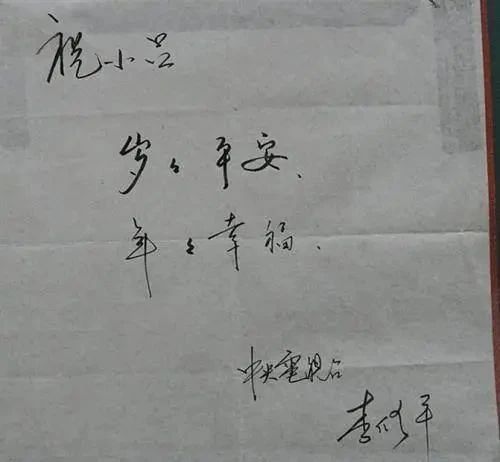 祝小吕
岁々平安、
年々幸福、
中央電視台
李修平